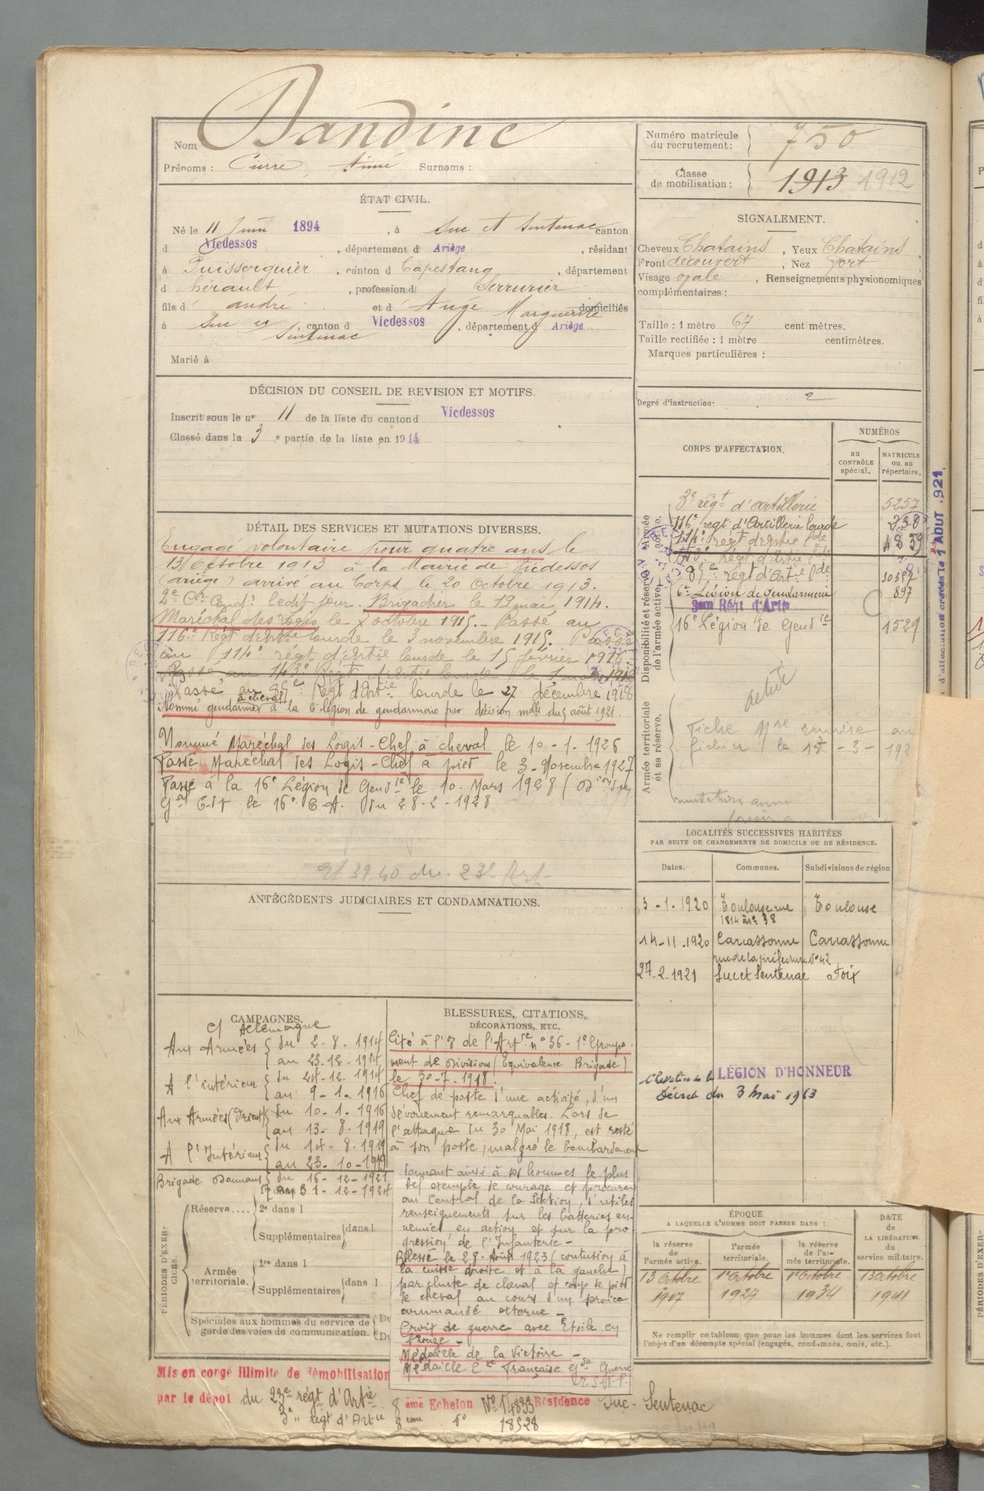 Nom Dandine
Prénoms : Pierre, Aimé Surnoms :
ÉTAT CIVIL.
Né le 11 Juin 1894, à Suc et Sentenac canton
d Vicdessos, département d Ariège, résidant
à Puisserguier, canton d Capestang, département
d hérault, profession d Serrurier
fils d andré et d Augé Marguerite domiciliés
à Suc et Sentenac canton d Vicdessos, département d Ariège
Marié à
DÉCISION DU CONSEIL DE REVISION ET MOTIFS.
Inscrit sous le n° 11 de la liste du canton d Vicdessos
Classé dans la 3e partie de la liste en 1914
DÉTAIL DES SERVICES ET MUTATIONS DIVERSES.
Engagé volontaire pour quatre ans le
13 Octobre 1913 à la Mairie de Vicdessos
(ariège) arrivé au Corps le 20 Octobre 1913.
2e Cr Condr ledit jour. Brigadier le 19 mai 1914.
Maréchal des logis le 8 octobre 1915. Passé au
116e Régt d'artie lourde le 3 novembre 1915. Passé
au 114e régt d'artie lourde le 15 février 1916.
Passé au 143e Régt d'artie lourde le 1
Passé au 87e Régt d'Artie lourde le 27 décembre 1918
à cheval
Nommé gendarme à la 6e légion de gendarmerie par décision mlle du 5 août 1921.
Nommé Maréchal des Logis-Chef à cheval le 10-1-1926
Passé Maréchal des Logis-Chef à pied le 3-Novembre 1927
Passé à la 16e Légion de Gendie le 10-Mars 1928 (
Gal Cdt le 16e C.A. du 28-2-1928
39.40 du 23e Art.
ANTÉCÉDENTS JUDICIAIRES ET CONDAMNATIONS.
CAMPAGNES.
C/ Allemagne
Aux Armées du 2-8-1914
au 23-12-1914
A l'intérieur du 24-12-1914
au 9-1-1916
Aux Armées (Orient) du 10-1-1916
au 13-8-1919
A l'Intérieur du 14-8-1919
au 23-10-1919
Brigade du 16-12-1921
au 31-12-1924
PÉRIODES D'EXERCICES.
Réserve.... 2e dans l
Supplémentaires (dans l
Armée territoriale. 1re dans l
Supplémentaires (dans l
Spéciales aux hommes du service de
garde des voies de communication.
BLESSURES, CITATIONS,
DÉCORATIONS, ETC.
Cité à l'O de l'Artie n° 36-1e Groupe-
ment de Divisions (Equivalence Brigade)
le 30-7-1918.
Chef de poste d'une activité, d'un
dévouement remarquables. Lors de
l'attaque du 30 Mai 1918, est resté
à son poste, malgré le bombardement
donnant ainsi à ses hommes le plus
bel exemple de courage et procurant
au Central de la Section, d'utiles
renseignements sur les batteries en-
nemies en action et sur la pro-
gression de l'Infanterie-
Blessé le 28-Août 1923 (contusion à
la cuisse droite et à la gauche)
par chute de cheval et coup de pied
de cheval au cours d'un service
commandé externe-
Croix de guerre avec Etoile en
Bronze-
Médaille de la Victoire-
Médaille Cve Française Gde Guerre
Mis en congé illimité de démobilisation
par le dépôt du 23e régt d'Artie 8ème Echelon N° 14833 Résidence Suc-Sentenac
3e régt d'Artie 8ème d° 18528
Numéro matricule du recrutement : 750
Classe de mobilisation : 1913 1912
SIGNALEMENT.
Cheveux Chatains, Yeux Chatains,
Front découvert, Nez fort,
Visage ovale, Renseignements physionomiques
complémentaires :
Taille : 1 mètre 67 centimètres.
Taille rectifiée : 1 mètre centimètres.
Marques particulières :
Degré d'instruction : 2
CORPS D'AFFECTATION.
NUMÉROS
AU CONTRÔLE spécial.
MATRICULE ou au répertoire.
Disponibilité et réserve de l'armée active.
Armée active.
3e régt d'artillerie 5257
116e régt d'Artillerie lourde 238
114e régt d'artie lde 4839
143e Régt d'Artie lde
87e régt d'Artie lde 10357
6e Légion de Gendarmerie 897
3ème Régt d'Artie
16e Légion de Gendie 1529
Armée territoriale et sa réserve.
active
Fiche Mre remise au
fichier le 15-3-192
LOCALITÉS SUCCESSIVES HABITÉES
PAR SUITE DE CHANGEMENTS DE DOMICILE OU DE RÉSIDENCE.
Dates. Communes. Subdivisions de région
3-1.1920 Toulouse rue Toulouse
14-11.1920 Carcassonne Carcassonne
rue de la préfecture n° 42
27.2.1921 Suc et Sentenac Foix
Chevalier de la LÉGION D'HONNEUR
Décret du 3 Mai 1963
ÉPOQUE
A LAQUELLE L'HOMME DOIT PASSER DANS :
la réserve de l'armée active. l'armée territoriale. la réserve de l'armée territoriale.
DATE de LA LIBÉRATION du service militaire.
13 octobre 1917 1er octobre 1927 1er octobre 1934 13 octobre 1941
Ne remplir ce tableau que pour les hommes dont les services font
l'objet d'un décompte spécial (engagés, condamnés, omis, etc.).
1 AOUT 1921.